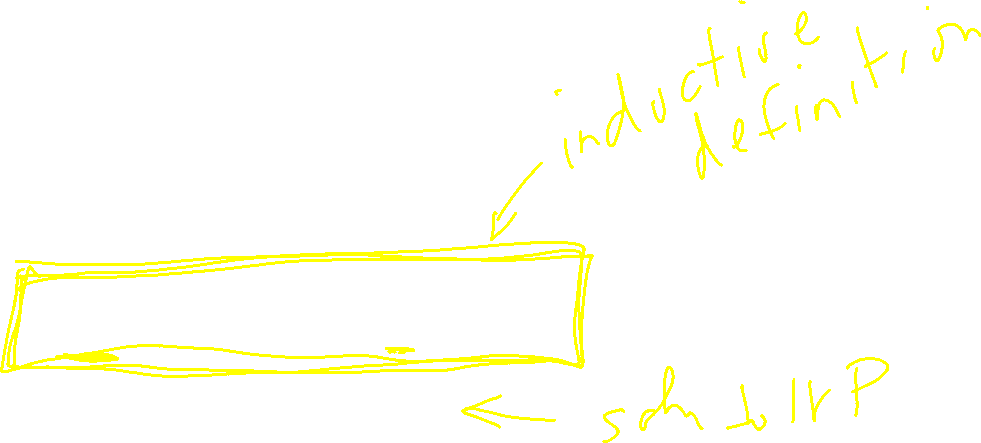 inductive
definition
soln to IVP